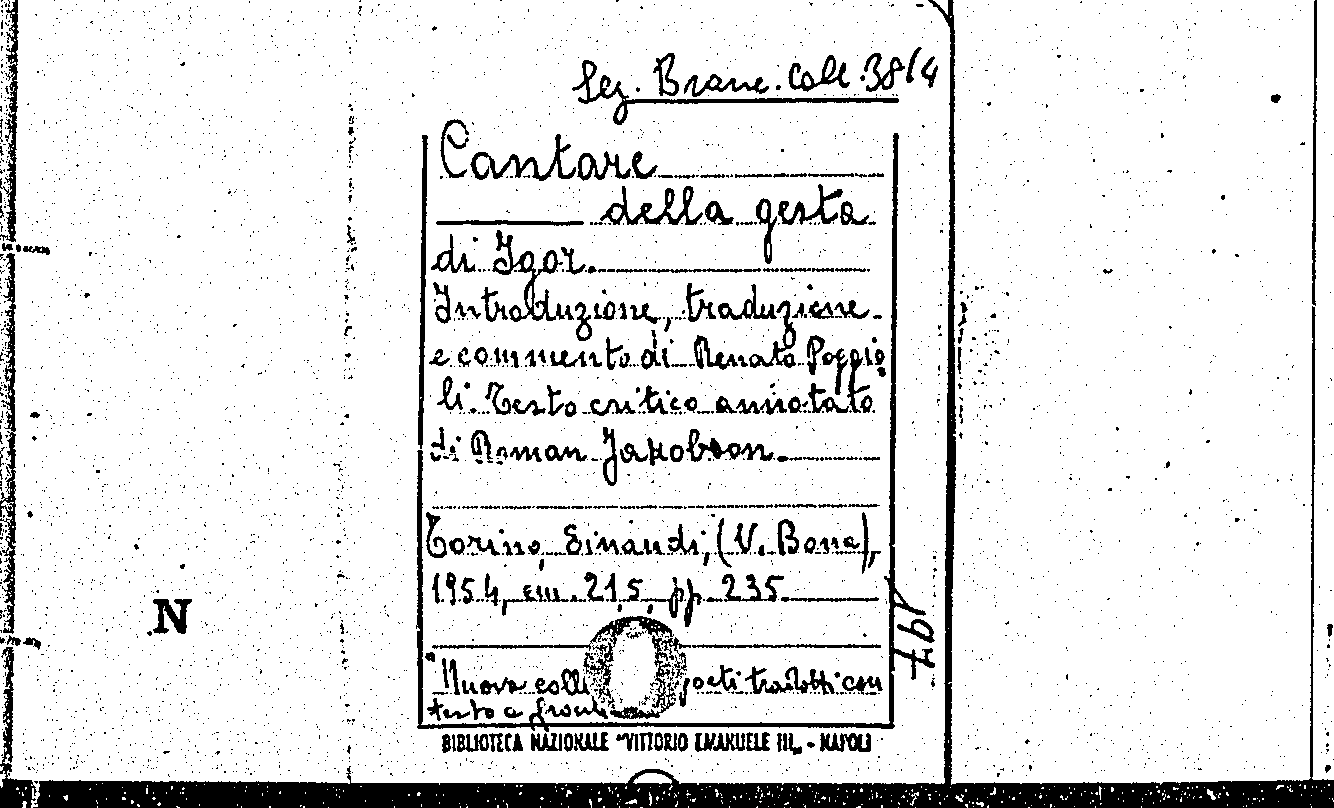 Sez. Branc. Coll. 38/4
Cantare
della gesta
di Igor.
Introduzione, traduzione
e commento di Renato Poggio
li. Testo critico annotato
di Roman Jakobson.
Torino, Einaudi, (V. Bona),
1954, cm. 21,5, pp. 235.
"Nuova coll poeti tradotti con
testo a
BIBLIOTECA NAZIONALE "VITTORIO EMANUELE III„ - NAPOLI
N